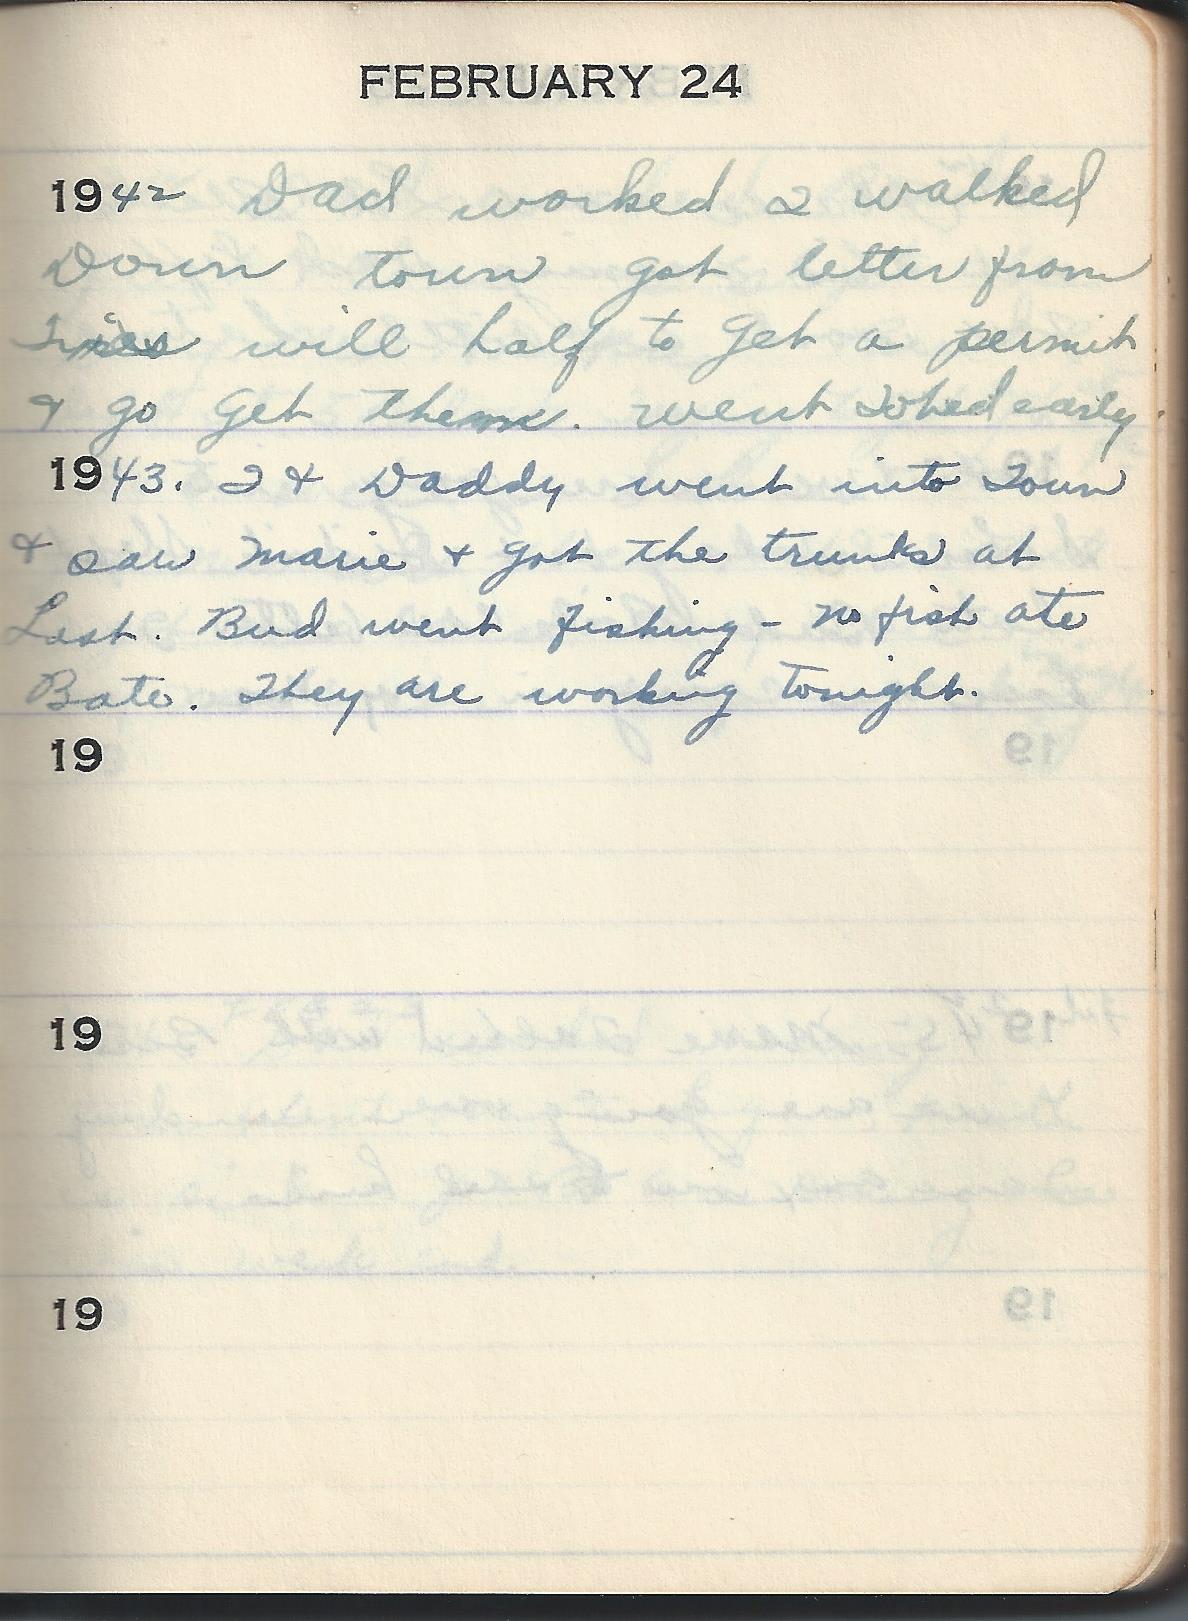 FEBRUARY 24
1942 Dad worked I walked
Down town got letter from
will half to get a permit
& go get them. went to bed early.
1943. I & Daddy went into Town
& saw Marie & got the trunks at
Last. Bud went fishing - no fish ate
Bate. They are working tonight.
19
19
19